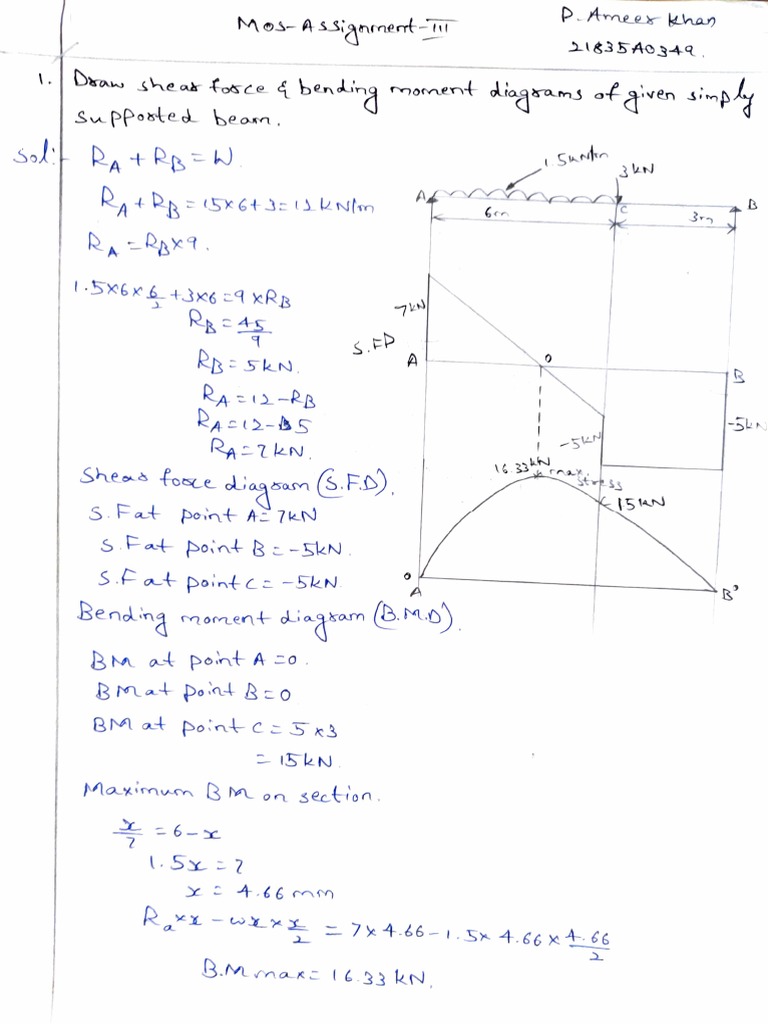 Mos-Assignment-III
P. Ameer Khan
21835A0349.
1. Draw shear force & bending moment diagrams of given simply
supported beam.
Sol:-
RA + RB = W.
RA + RB = 15x6+3=12 kN/m
RA = RB x 9.
1.5x6x 6/2 + 3x6 = 9 x RB
RB = 45/9
RB = 5kN.
RA = 12-RB
RA = 12-5
RA = 7kN.
Shear force diagram (S.F.D).
S.F at point A = 7kN
S.F at point B = -5kN.
S.F at point C = -5kN.
Bending moment diagram (B.M.D).
BM at point A = 0.
BM at point B = 0
BM at point C = 5 x 3
= 15kN.
Maximum BM on section.
x/7 = 6-x
1.5x = 7
x = 4.66 mm
Ra x x - wx x x/2 = 7 x 4.66 - 1.5 x 4.66 x 4.66/2
B.M max = 16.33 kN.
1.5kN/m
3 kN
A
C
B
6m
3m
7kN
S.FD
A
0
B
-5kN
-5kN
16.33kN
max. stress
C 15kN
0
A
B'